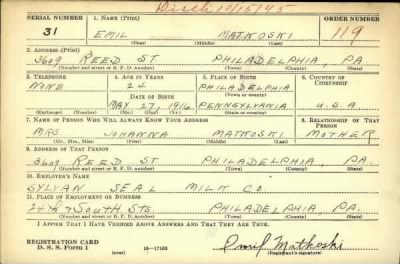 Disch 10/15/45
SERIAL NUMBER 1. NAME (Print) ORDER NUMBER
31 EMIL MATKOSKI 119
(First) (Middle) (Last)
2. ADDRESS (Print)
3609 REED ST. PHILADELPHIA, PA.
(Number and street or R. F. D. number) (Town) (County) (State)
3. TELEPHONE 4. AGE IN YEARS 5. PLACE OF BIRTH 6. COUNTRY OF CITIZENSHIP
NONE 24 PHILADELPHIA
DATE OF BIRTH (Town or county)
MAY 27, 1916 PENNSYLVANIA U.S.A.
(Exchange) (Number) (Mo.) (Day) (Yr.) (State or country)
7. NAME OF PERSON WHO WILL ALWAYS KNOW YOUR ADDRESS 8. RELATIONSHIP OF THAT PERSON
MRS. JOHANNA MATKOSKI MOTHER
(Mr., Mrs., Miss) (First) (Middle) (Last)
9. ADDRESS OF THAT PERSON
3609 REED ST. PHILADELPHIA, PA.
(Number and street or R. F. D. number) (Town) (County) (State)
10. EMPLOYER'S NAME
SYLVAN SEAL MILK CO.
11. PLACE OF EMPLOYMENT OR BUSINESS
24th & SOUTH STS PHILADELPHIA, PA.
(Number and street or R. F. D. number) (Town) (County) (State)
I AFFIRM THAT I HAVE VERIFIED ABOVE ANSWERS AND THAT THEY ARE TRUE.
REGISTRATION CARD
D. S. S. Form 1 (over) 16—17105 Emil Matkoski
(Registrant's signature)